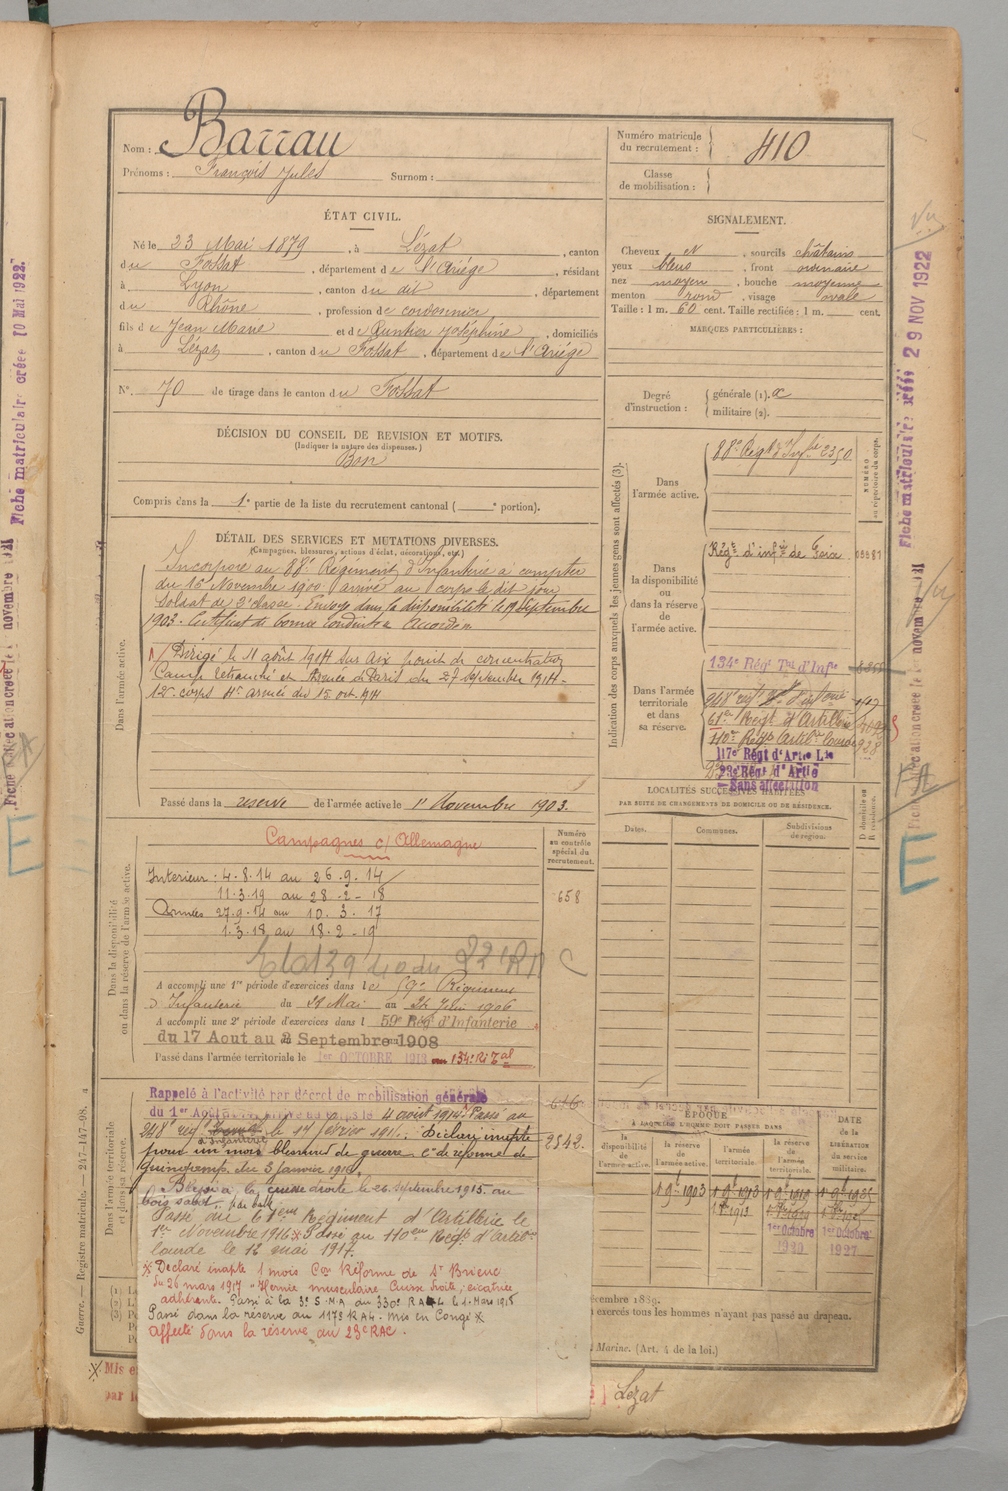 Nom : Barrau
Prénoms : François Jules Surnom :
Numéro matricule du recrutement : 410
Classe de mobilisation :
ÉTAT CIVIL.
Né le 23 Mai 1879, à Lézat, canton
du Fossat, département de l'Ariège, résidant
à Lyon, canton du dit, département
du Rhône, profession de cordonnier
fils de Jean Marie et de Joséphine, domiciliés
à Lézat, canton du Fossat, département de l'Ariège
N° 70 de tirage dans le canton du Fossat
SIGNALEMENT.
Cheveux N, sourcils châtains
yeux bleus, front ordinaire
nez moyen, bouche moyenne
menton rond, visage ovale
Taille : 1 m. 60 cent. Taille rectifiée : 1 m. cent.
MARQUES PARTICULIÈRES :
Degré d'instruction :
générale (1).
militaire (2).
DÉCISION DU CONSEIL DE REVISION ET MOTIFS.
(Indiquer la nature des dispenses.)
Bon
Compris dans la 1e partie de la liste du recrutement cantonal ( e portion).
DÉTAIL DES SERVICES ET MUTATIONS DIVERSES.
(Campagnes, blessures, actions d'éclat, décorations, etc.)
Dans l'armée active.
Incorporé au 88e Régiment d'Infanterie à compter
du 15 Novembre 1900 arrivé au corps le dit jour
Soldat de 2e classe. Envoyé dans la disponibilité le 19 Septembre
1903. Certificat de bonne conduite Accordé
Dirigé le 11 août 1914 sur Aix point de concentration
Camp retranché et Armée de Paris du 27 septembre 1914
12e corps 4e armée du 15 oct. 1914
Passé dans la réserve de l'armée active le 1er Novembre 1903.
Indication des corps auxquels les jeunes gens sont affectés (3).
NUMÉRO au répertoire du corps.
Dans l'armée active.
88e Régt d'Infie 2350
Dans la disponibilité ou dans la réserve de l'armée active.
Régt d'infie de Foix
Dans l'armée territoriale et dans sa réserve.
134e Régt Tal d'Infie
248e
61er Régt d'Artillerie
110e Régt Artilie lourde 928
117e Régt d'Artie Lde
23e Régt d'Artie
Sans affectation
LOCALITÉS SUCCESSIVES HABITÉES
PAR SUITE DE CHANGEMENTS DE DOMICILE OU DE RÉSIDENCE.
Dates. Communes. Subdivisions de région. D domicile ou R résidence.
Dans la disponibilité ou dans la réserve de l'armée active.
Numéro au contrôle spécial du recrutement.
658
Campagnes c/ Allemagne
Intérieur : 4.8.14 au 26.9.14
11.3.19 au 28.2.18
Armées 27.9.14 au 10.3.17
1.3.18 au 18.2.19
A accompli une 1re période d'exercices dans le 59e Régiment
d'Infanterie du 29 Mai au 24 Juin 1906
A accompli une 2e période d'exercices dans l 59e Régt d'Infanterie
du 17 Aout au 2 Septembre 1908
Passé dans l'armée territoriale le 1er OCTOBRE 1913 au 134e Ri Tal
Dans l'armée territoriale et dans sa réserve.
Rappelé à l'activité par décret de mobilisation générale
du 1er Août 4 août 1914. Passé au
248e d'infanterie. Déclaré inapte
pour un mois blessure de guerre Con de réforme de
Guingamp du 3 janvier 1916
Blessé à la cuisse droite le 26 septembre 1915 au
bois sabot par balle
Passé au 61eme Régiment d'Artillerie le
1er Novembre 1916 x Passé au 110eme Régt d'Artilie
lourde le 12 mai 1917.
x Déclaré inapte 1 mois Con Réforme de St Brieuc
du 26 mars 1917 "Hernie musculaire Cuisse droite, cicatrice
adhérente. Passé à la 3e S.M.A. du 330e le 1 Mars 1918
Passé dans la réserve au 117e RAL. Mis en Congé x
affecté dans la réserve au 23e RAC.
616
2542
ÉPOQUE
À LAQUELLE L'HOMME DOIT PASSER DANS
la disponibilité de l'armée active.
la réserve de l'armée active.
l'armée territoriale.
la réserve de l'armée territoriale.
DATE de la LIBÉRATION du service militaire.
1 9e 1903
1 9e 1913
1er Octobre 1920
1er Octobre 1927
décembre 1889.
exercés tous les hommes n'ayant pas passé au drapeau.
Marine. (Art. 4 de la loi.)
Lézat
Mis e
par l
Guerre. — Registre matricule. — 247-147-08.
Fiche matriculaire créée 10 Mai 1922.
Fiche matriculaire créée 29 NOV 1922
E
E